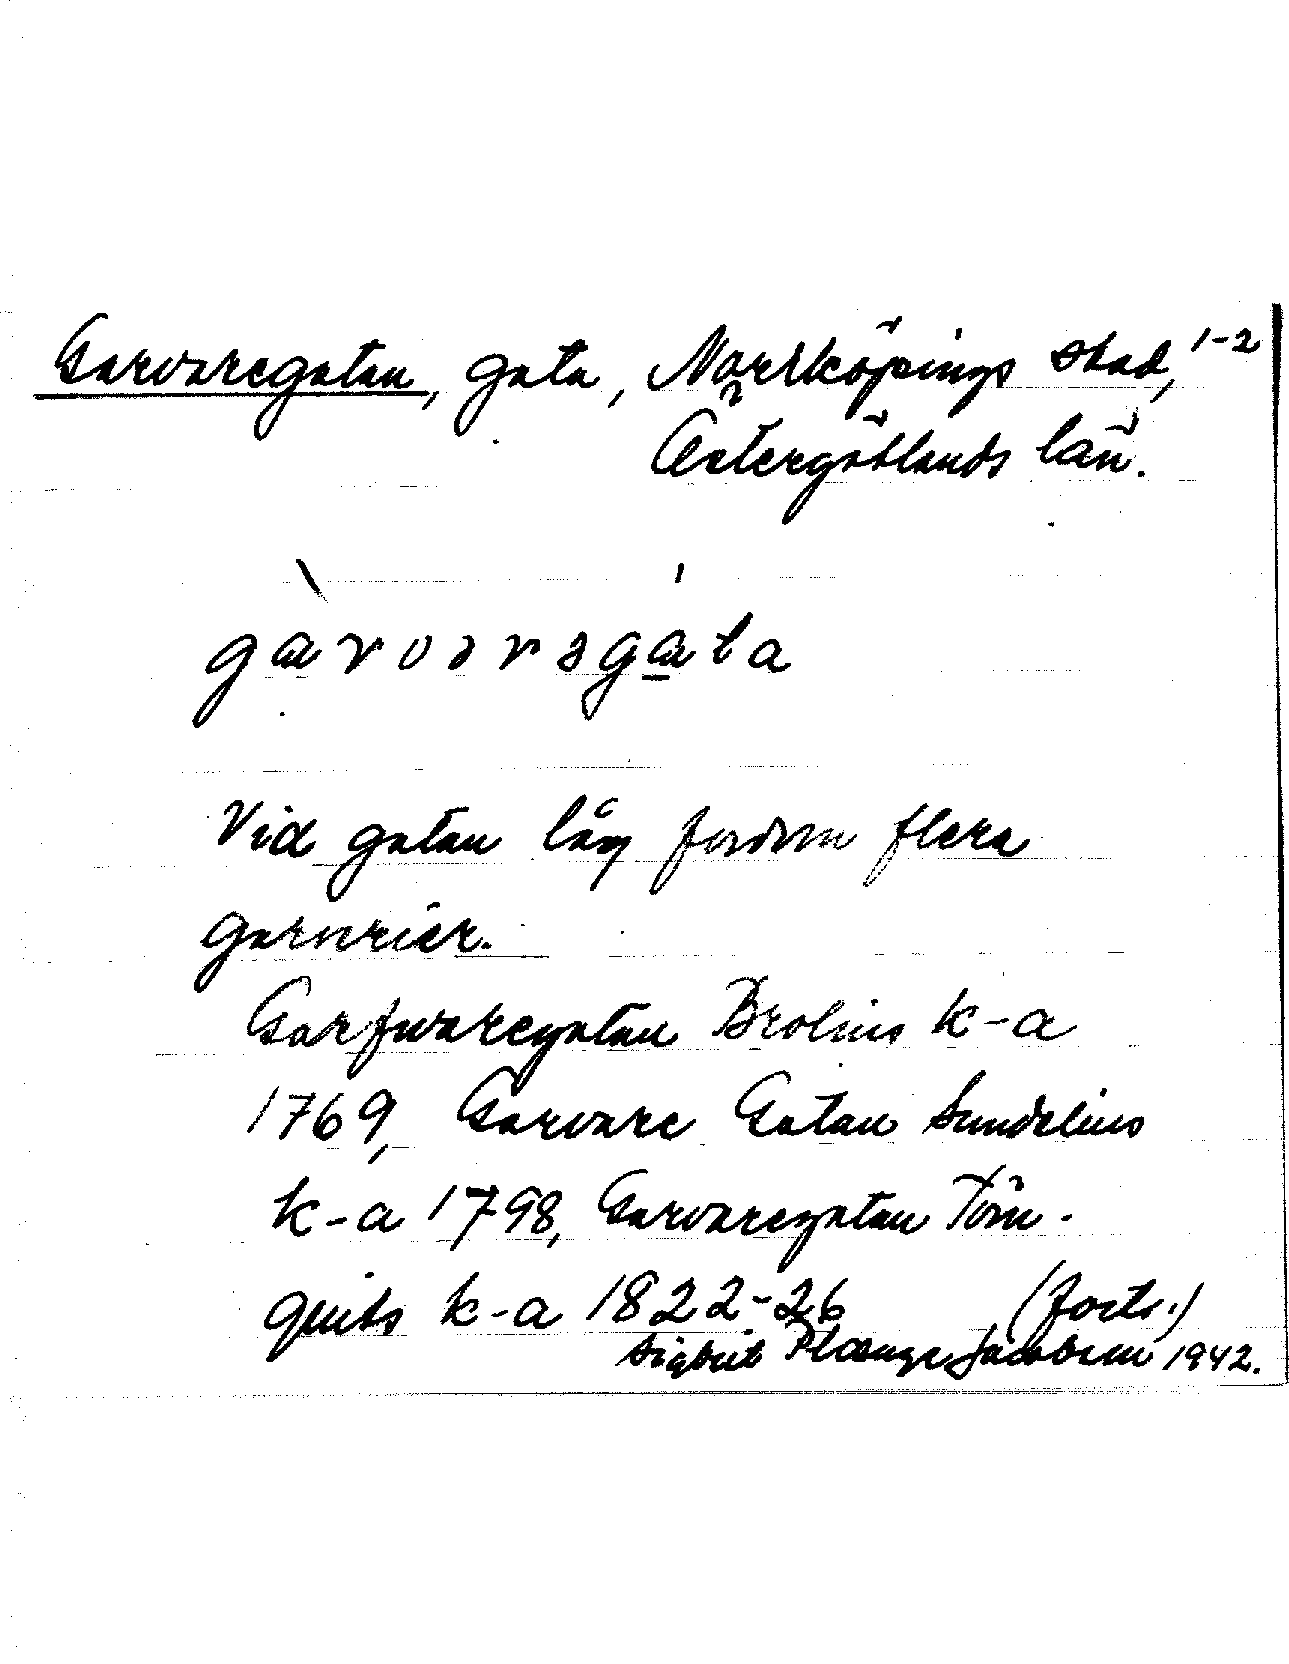 Garvaregatan, gata, Norrköpings stad, 1-2
Östergötlands län.
gàrvərəgáta
Vid gatan låg fordom flera
garverier.
Garfwaregatan Brolins k-a
1769, Garvare Gatan Sundelius
k-a 1798, Garvaregatan Törn-
quists k-a 1822-26 (forts.)
Sigbrit Plænge Jacobson 1942.